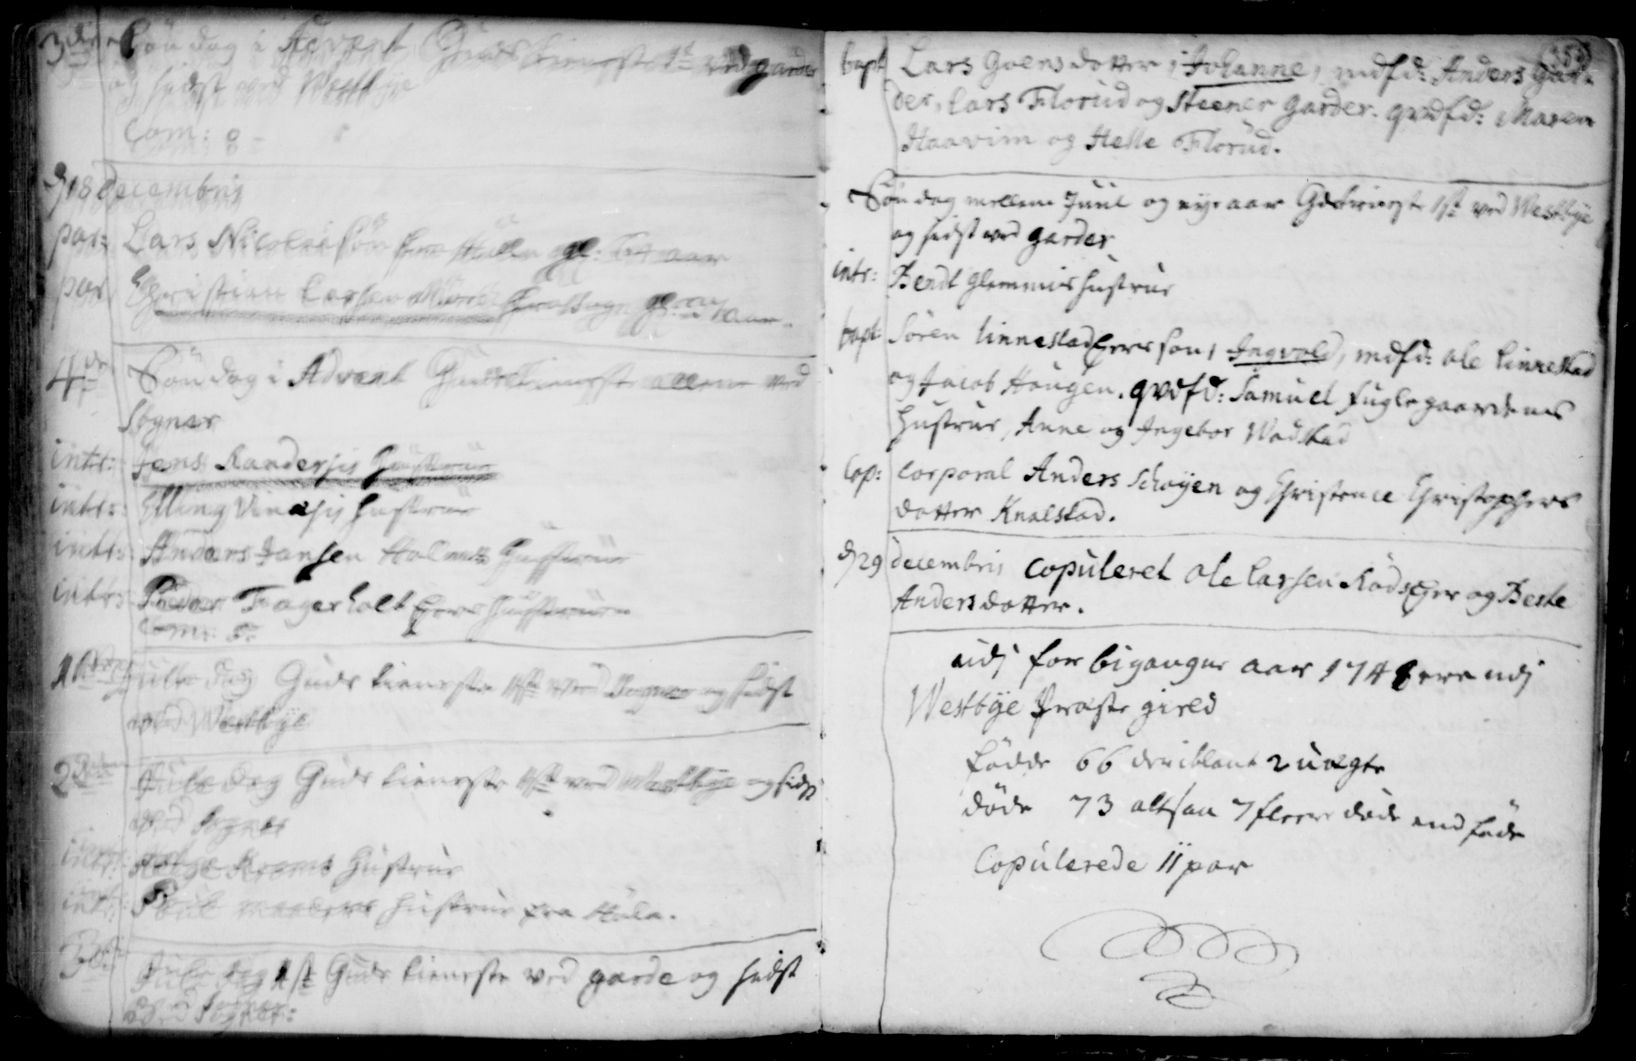 3die Søndag i Advent Guds tieneste 1st ved garder
og sidst ved Westbye
Com: 8
d 18 decembris
pas: Lars Nicolaisøn fra Hulla gl: aar
pas Christian Larsen gl: aar
4de Søndag i Advent Guds tieneste allene ved
Sogner
intr: Jens Randersis Hustrue
intr: Elling Vindsis hustrue
intr: Anders Jansen Holmens Hustrue
intr: Peder Fagerholt hustrue
Com: 5
1ste Jule dag Guds tieneste 1st ved Sogner og sidst
ved Westbye
2den Jule dag Guds tieneste 1st ved Westbye og sidst
ved Sogner
intr: Helge Kroms Hustrue
intr: Poul hustrue fra Hulu.
3die Jule dag 1st Guds tieneste ved garde og sidst
ved Sogner:
bapt Lars Goens dotter, Johanne, mdfd: Anders Gar-
der, Lars Florud og Steener Garder. qvdfd: Maren
Haavim og Helle Florud.
Søndag mellem Juul og nye aar Gdstieneste 1st ved Westbye
og sidst ved garder
intr: Bendt Glemmis hustrue
bapt: Søren Linnestad søn, Ingvold, mdfd: ole Linnestad
og Jacob Haugen. qvdfd: Samuel fuglegaardens
hustrue, Anne og Ingebor Wadstad
Cop: Corporal Anders Schøyen og Christence Christophers
dotter Knalstad.
d 29 decembris copuleret ole Larsen og Berte
Anders dotter.
udj forbigangne aar 1748 ere udj
Westbye Præste gield
fødde 66 deriblant 2 uægte
døde 73 altsaa 7 fleere døde end føde
Copulerede 11 par